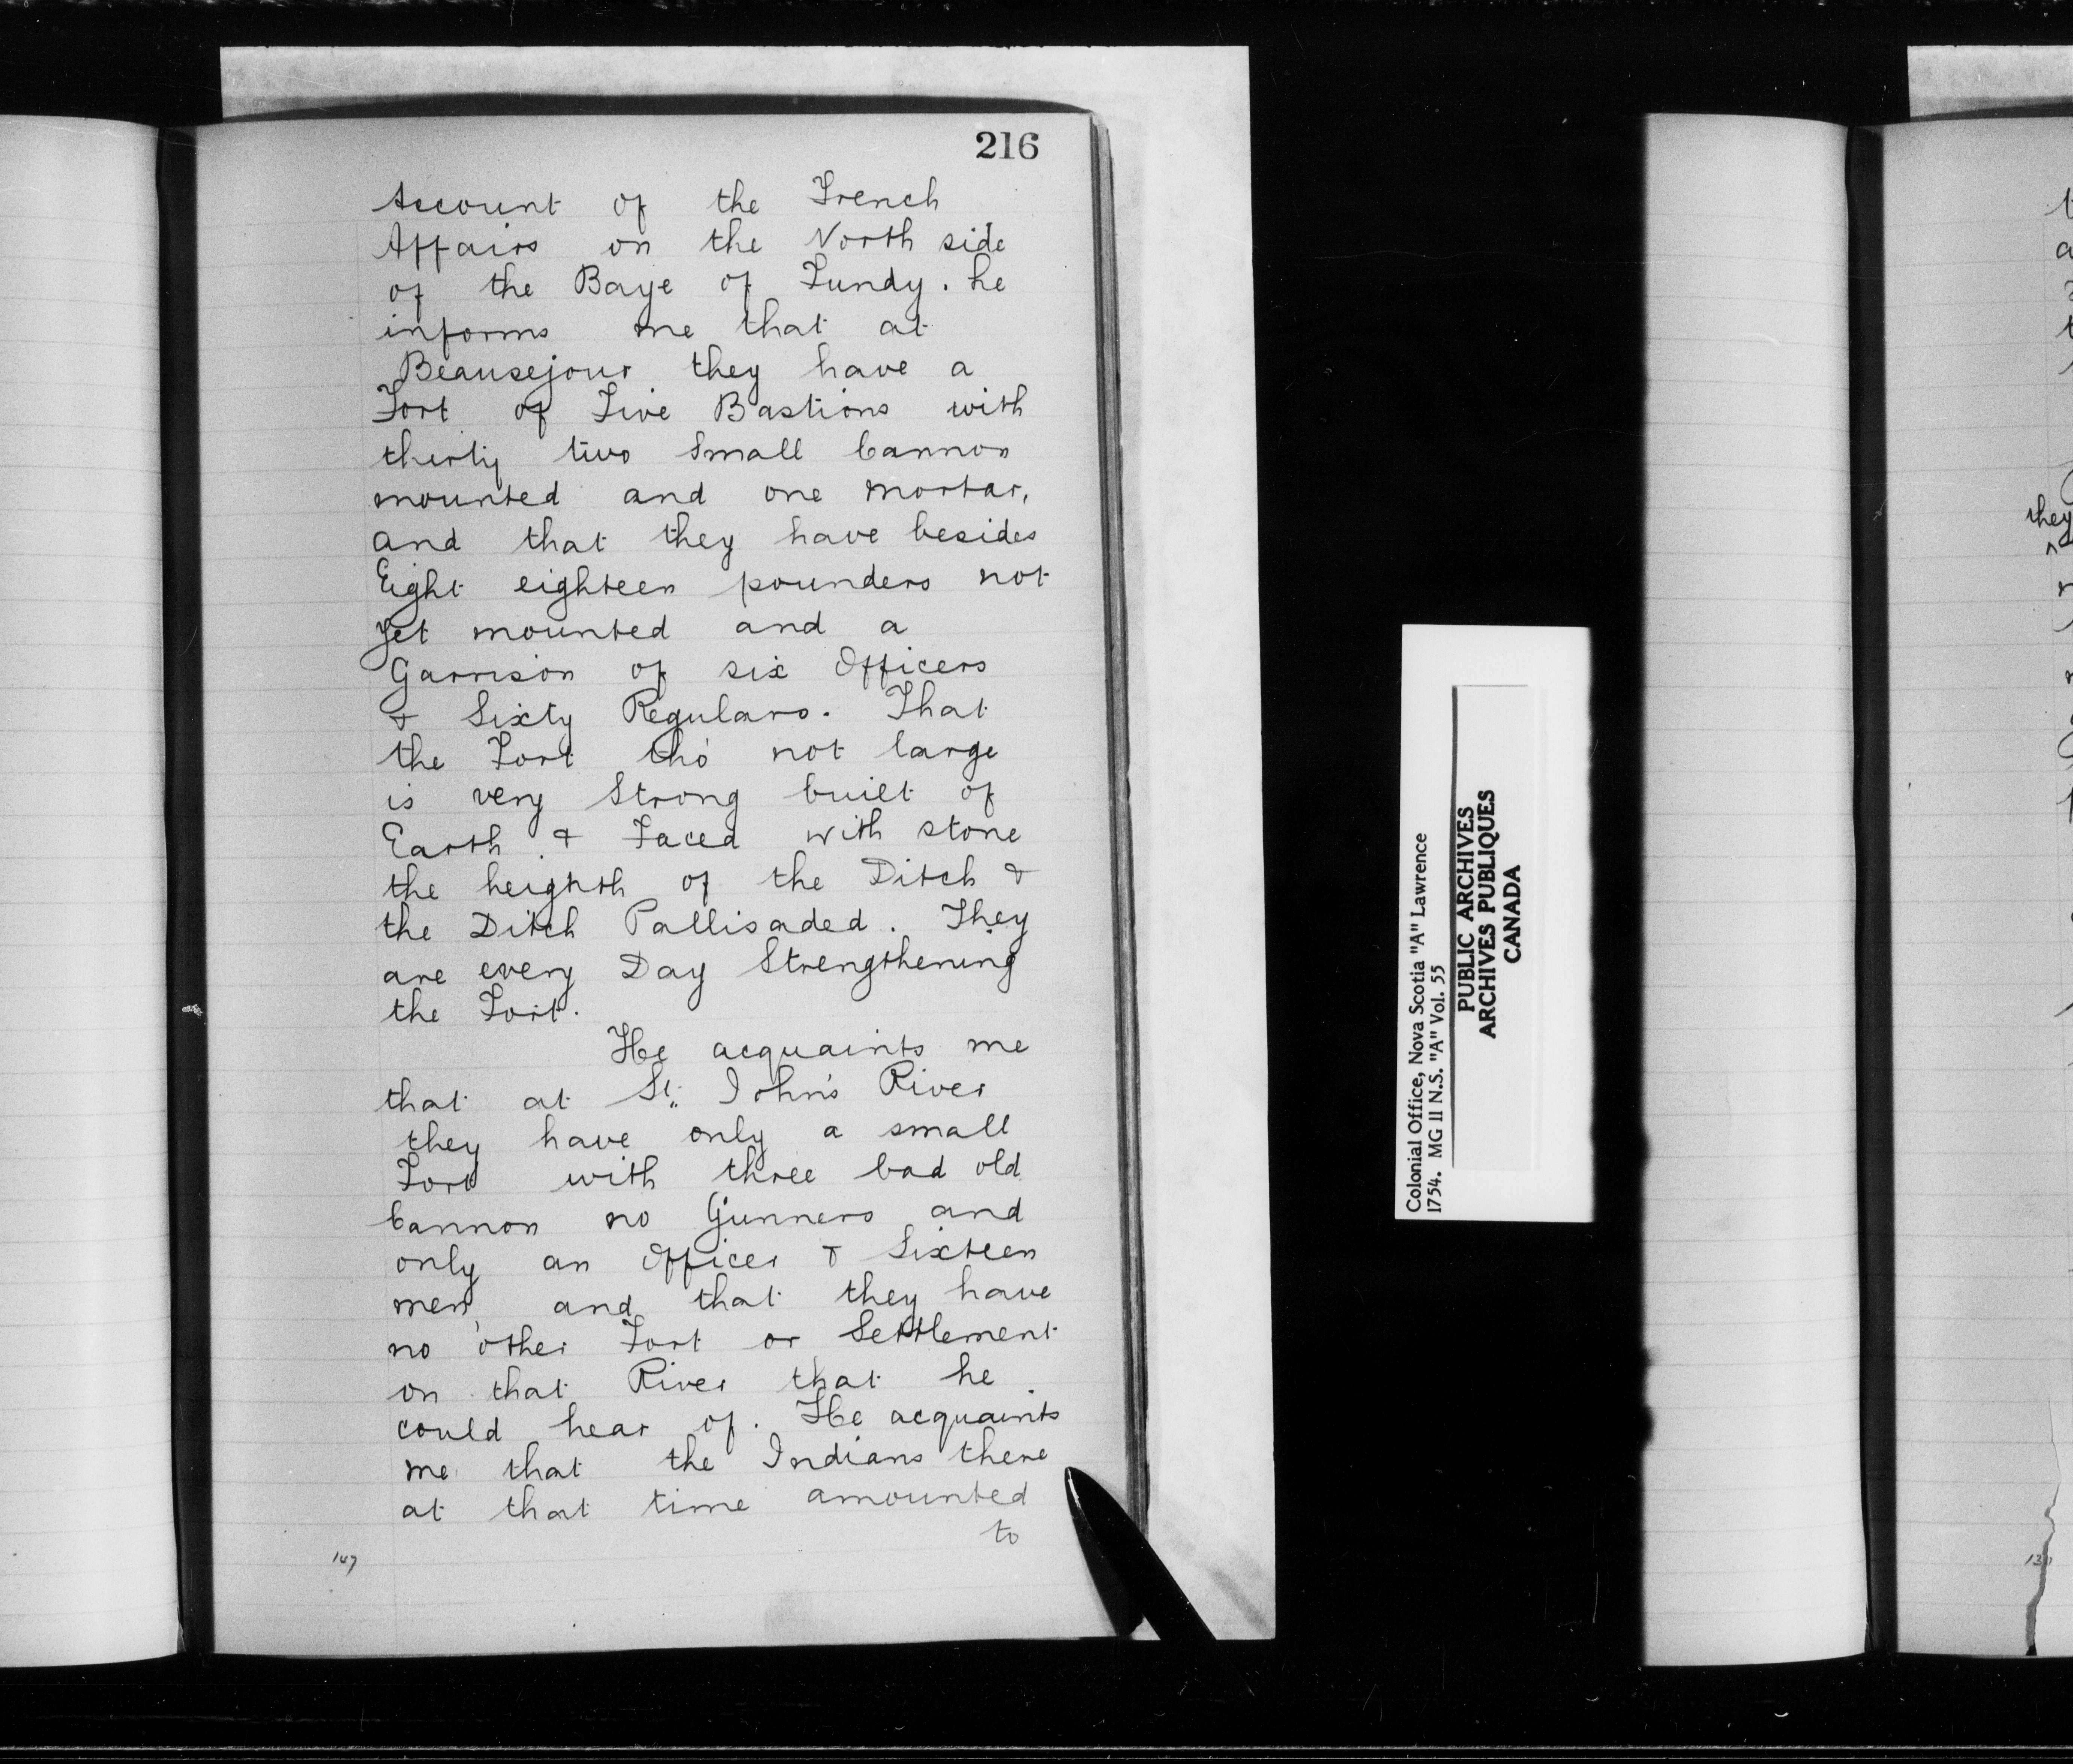 216
Account of the French
Affairs on the North side
of the Baye of Fundy. he
informs me that at
Beausejour they have a
Fort of Five Bastions with
thirty two Small Cannon
mounted and one mortar,
and that they have besides
Eight eighteen pounders not
yet mounted and a
Garrison of six Officers
& Sixty Regulars. That
the Fort tho' not large
is very Strong built of
Earth & Faced with stone
the heighth of the Ditch &
the Ditch Pallisaded. They
are every Day Strengthening
the Fort.
He acquaints me
that at St. John's River
they have only a small
Fort with three bad old
Cannon no Gunners and
only an Officer & Sixteen
men, and that they have
no other Fort or Settlement
on that River that he
could hear of. He acquaints
me that the Indians there
at that time amounted
to
147
Colonial Office, Nova Scotia "A" Lawrence
1754. MG 11 N.S. "A" Vol. 55
PUBLIC ARCHIVES
ARCHIVES PUBLIQUES
CANADA
they